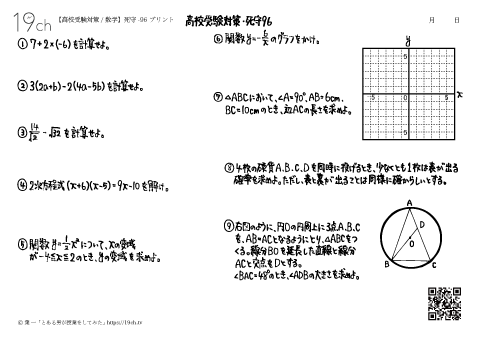 19ch 【高校受験対策/数学】死守-96 プリント 高校受験対策・死守96 月 日
① 7+2×(-6)を計算せよ。
② 3(2a+b)-2(4a-5b)を計算せよ。
③ 14/√2 - √32 を計算せよ。
④ 2次方程式(x+6)(x-5)=9x-10を解け。
⑤ 関数y=1/2x²について、xの変域
が-4≦x≦2のとき、yの変域を求めよ。
⑥ 関数y=-6/xのグラフをかけ。
y
5
-5 0 5 x
-5
⑦ △ABCにおいて、∠A=90°、AB=6cm、
BC=10cmのとき、辺ACの長さを求めよ。
⑧ 4枚の硬貨A.B.C.Dを同時に投げるとき、少なくとも1枚は表が出る
確率を求めよ。ただし、表と裏が出ることは同様に確からしいとする。
⑨ 右図のように、円Oの円周上に3点A.B.C
を、AB=ACとなるようにとり、△ABCをつ
くる。線分BOを延長した直線と線分
ACと交点をDとする。
∠BAC=48°のとき、∠ADBの大きさを求めよ。
A
D
O
B C
© 葉一「とある男が授業をしてみた」https://19ch.tv